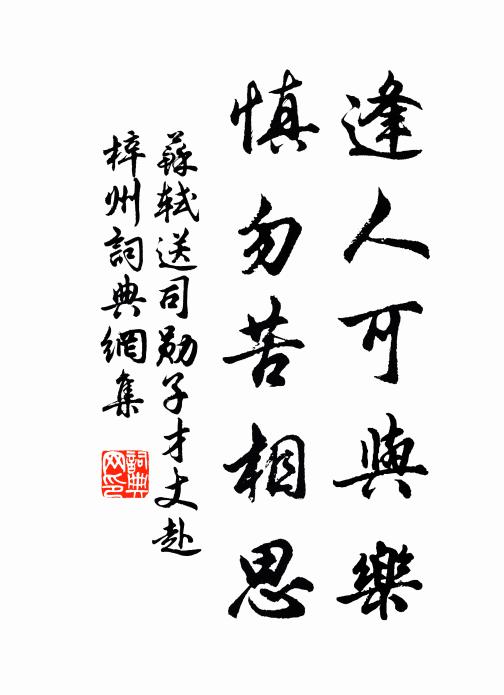 逢人可與樂
慎勿苦相思
蘇軾送司勋子才丈赴
梓州詞典網集
詞典
网印